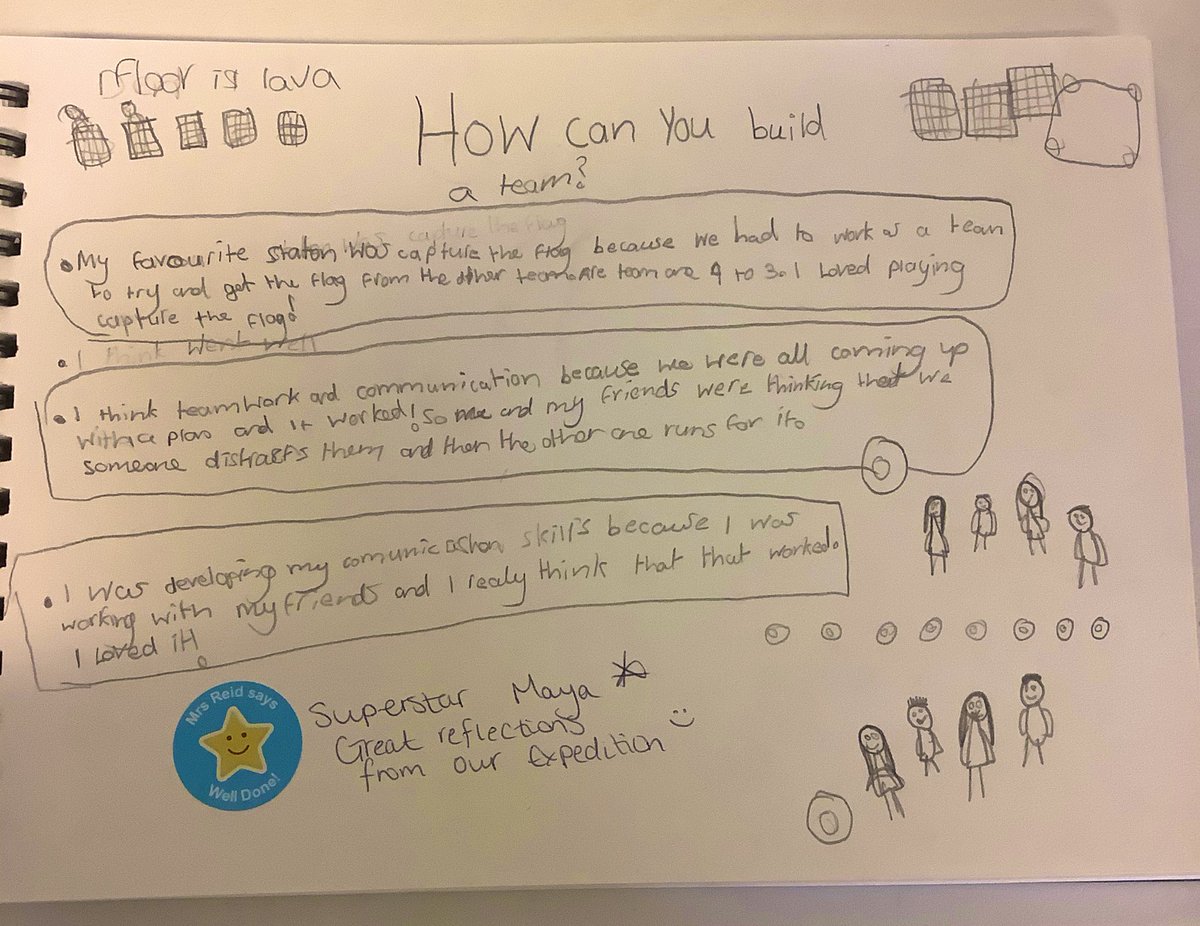 Floor is lava
How can you build
a team?
My favourite staton was capture the flag because we had to work as a team
to try and get the flag from the other team. Are team are 4 to 3. I loved playing
capture the flag!
I think went well
I think teamwork and communication because we were all coming up
with a plan and it worked! So me and my friends were thinking that we
someone distracts them and then the other one runs for it.
I was developing my comunication skills because I was
working with my friends and I realy think that that worked.
I loved it!
Mrs Reid says
Well Done!
Superstar Maya
Great reflections
from our Expedition :)